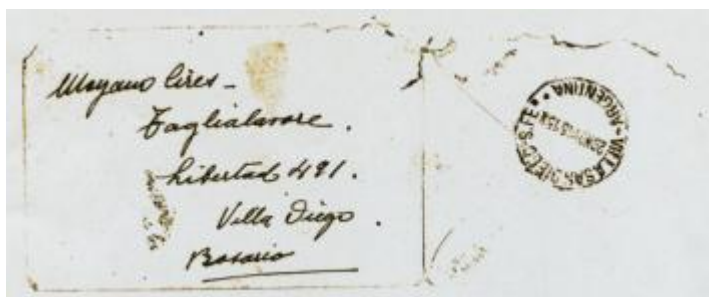 Moyano Cires -
Taglialavore.
Libertad 491.
Villa Diego.
Rosario
VILLA SAN DIEGO - S. FE
ARGENTINA